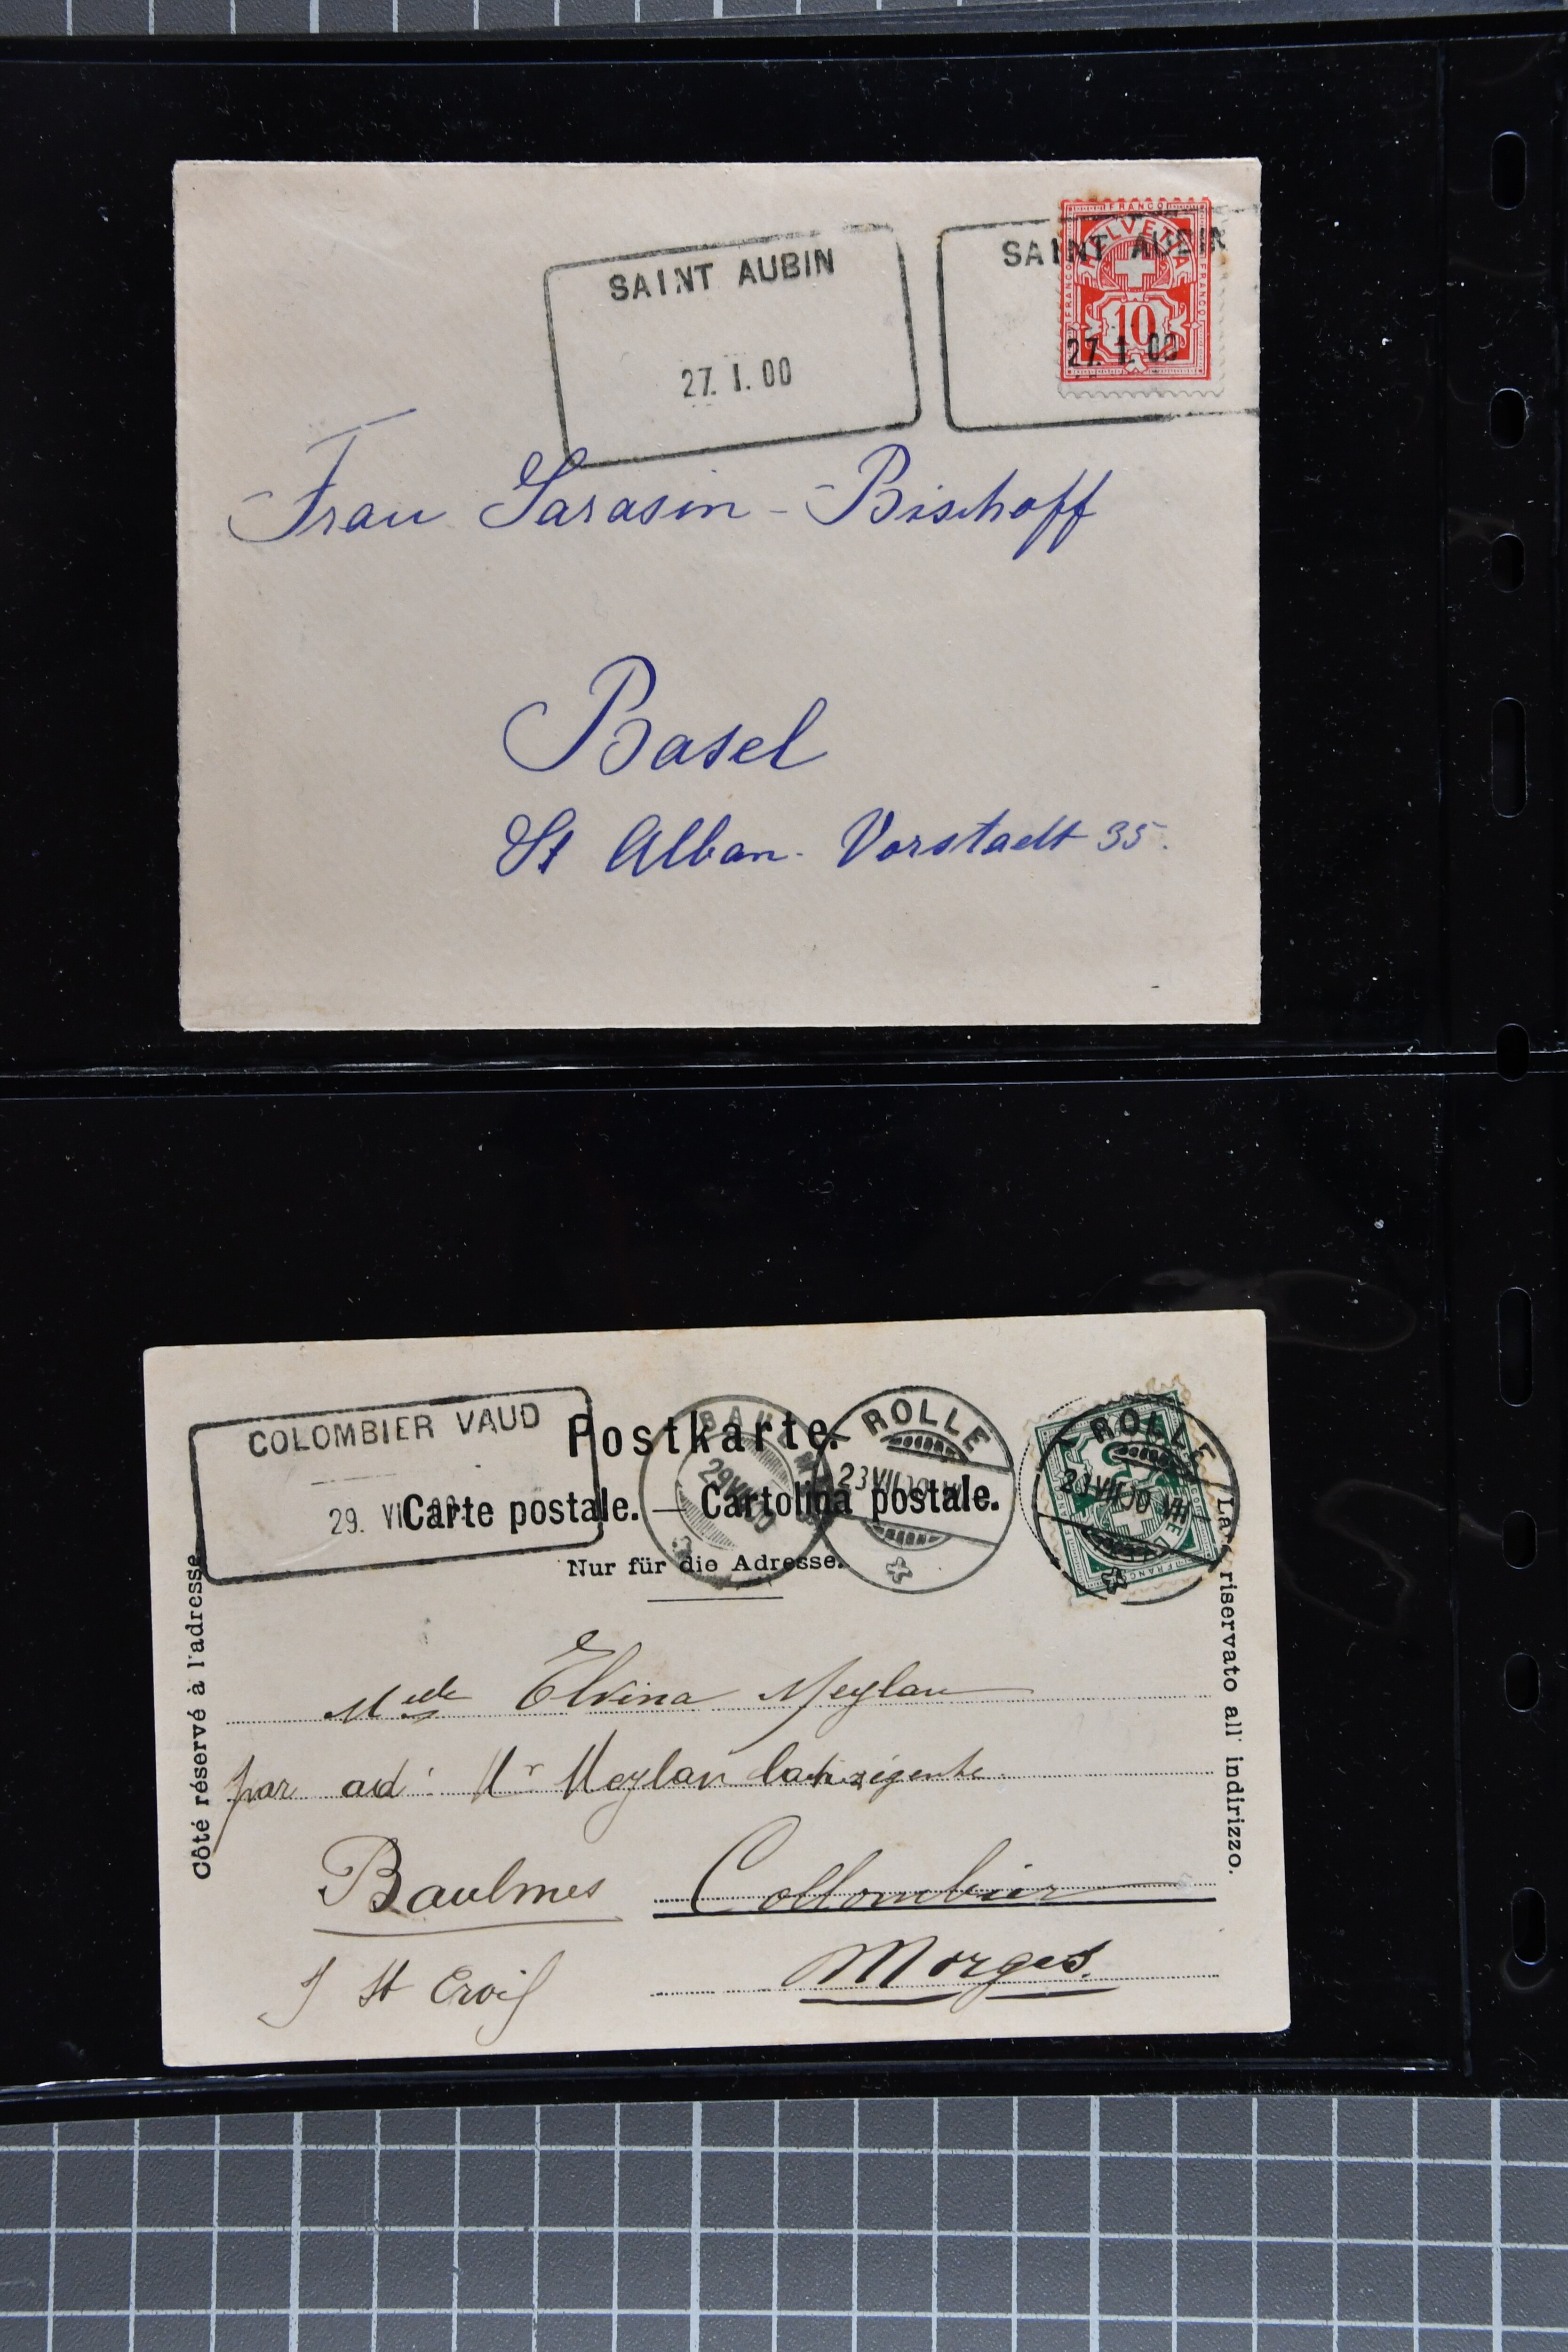 SAINT AUBIN
27. I. 00
SAINT AUBIN
27. I. 00
FRANCO
HELVETIA
FRANCO
FRANCO
10
Frau Sarasin-Bischoff
Basel
St Alban-Vorstadt 35.
COLOMBIER VAUD
29. VII
Postkarte.
Carte postale. — Cartolina postale.
Nur für die Adresse.
ROLLE
23 VII
ROLLE
23 VII 00 VII
29 VII
Côté réservé à l'adresse
riservato all' indirizzo.
Melle Elvina Meylan
par ad: Mr Meylan
Baulmes Collombier
s/ St Croix Morges.